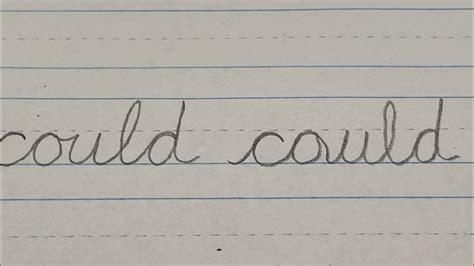 could could